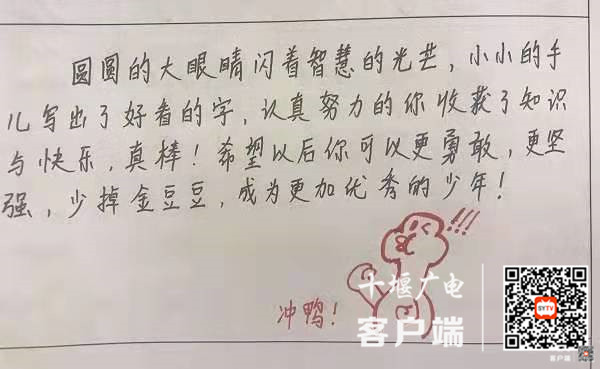 圆圆的大眼睛闪着智慧的光芒，小小的手
儿写出了好看的字，认真努力的你收获了知识
与快乐，真棒！希望以后你可以更勇敢，更坚
强，少掉金豆豆，成为更加优秀的少年！
!!!
冲鸭！
十堰广电
客户端
SYTV
客户端